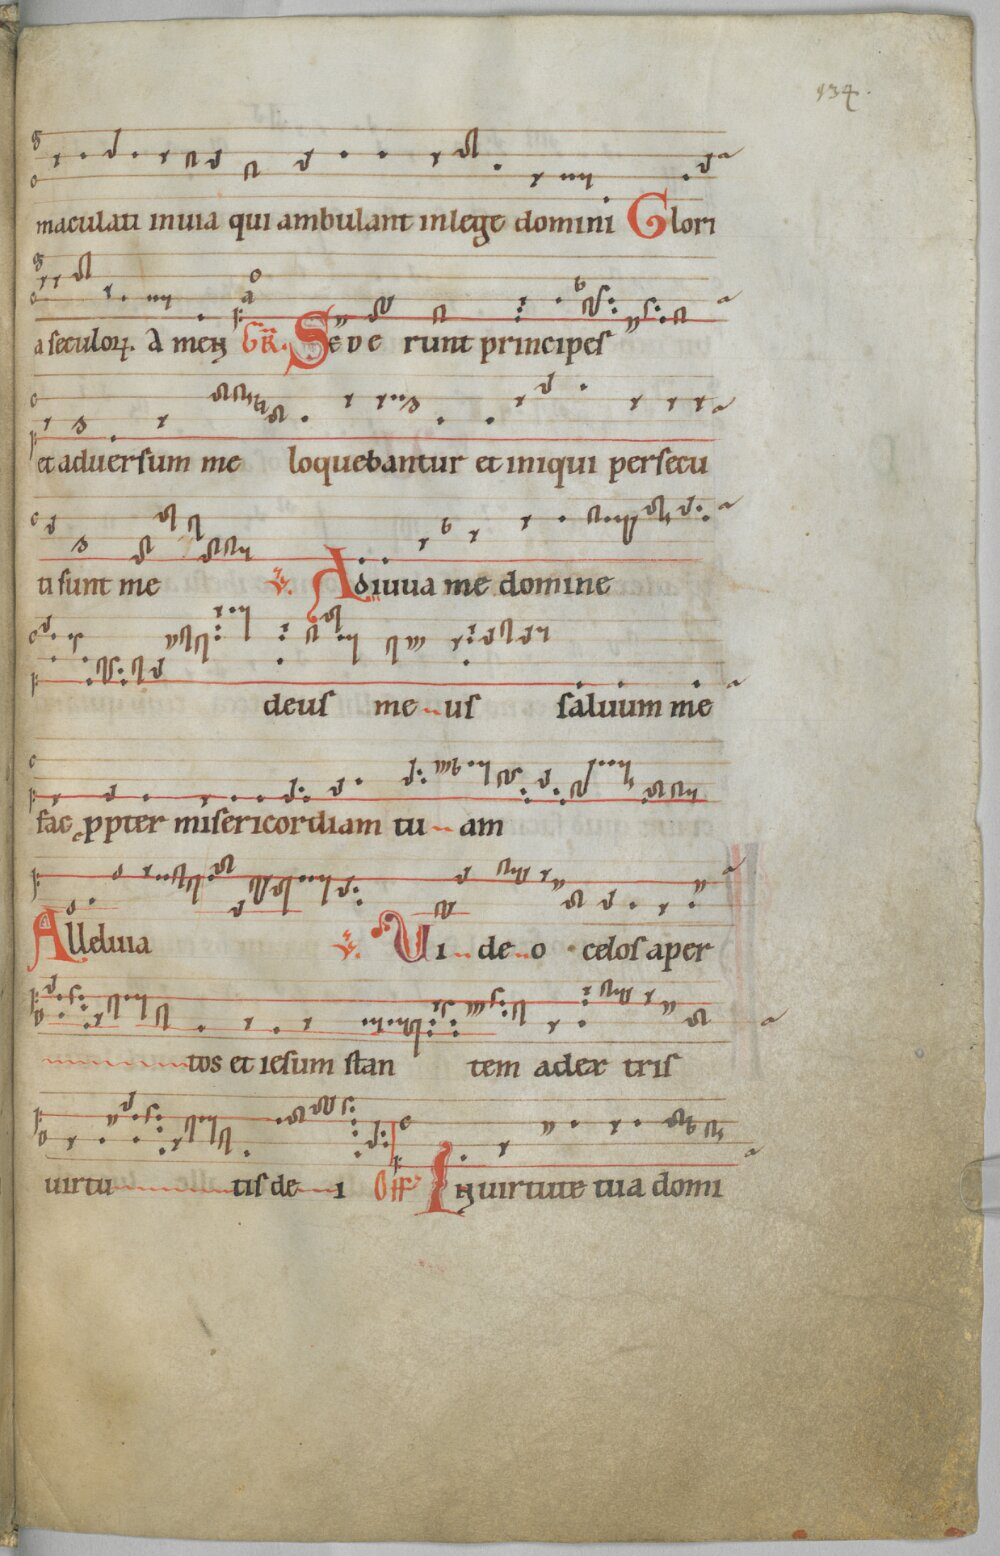 134.
maculati in uia qui ambulant in lege domini Glori
a seculorꝝ. A men GR. Sede runt principes
et aduersum me loquebantur et iniqui persecu
ti sunt me V. Adiuua me domine
deus me us saluum me
fac ꝓpter misericordiam tu am
Alleluia V. Ui de o celos aper
tos et iesum stan tem adex tris
uirtu tis de i Off In uirtute tua domi